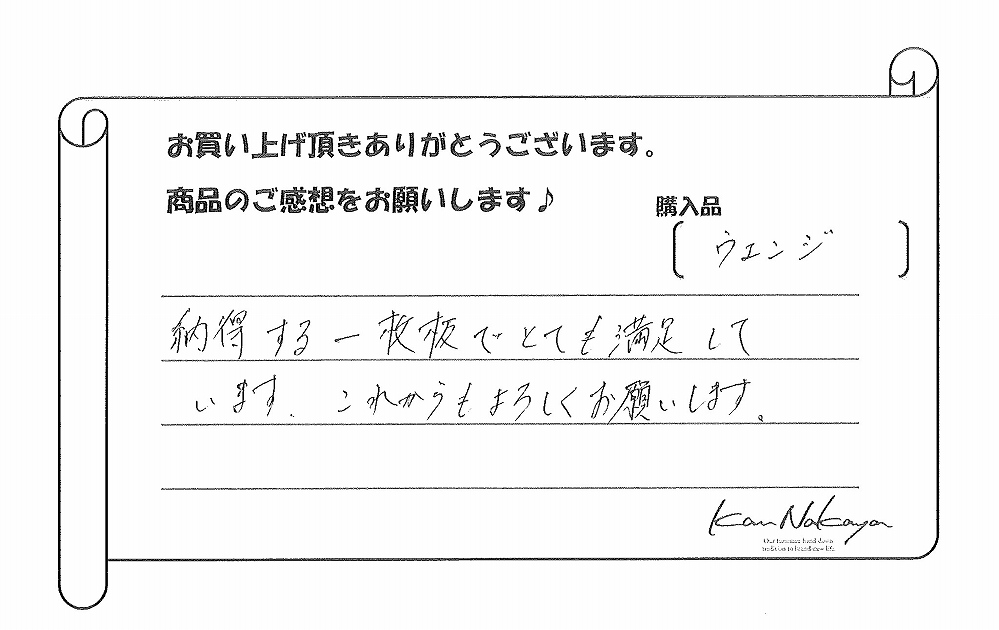 お買い上げ頂きありがとうございます。
商品のご感想をお願いします♪
購入品
〔 ウエンジ 〕
納得する一枚板でとても満足して
います. これからもよろしくお願いします。
Kan Nakaya
Our furniture hand down
tradition to brand-new life.